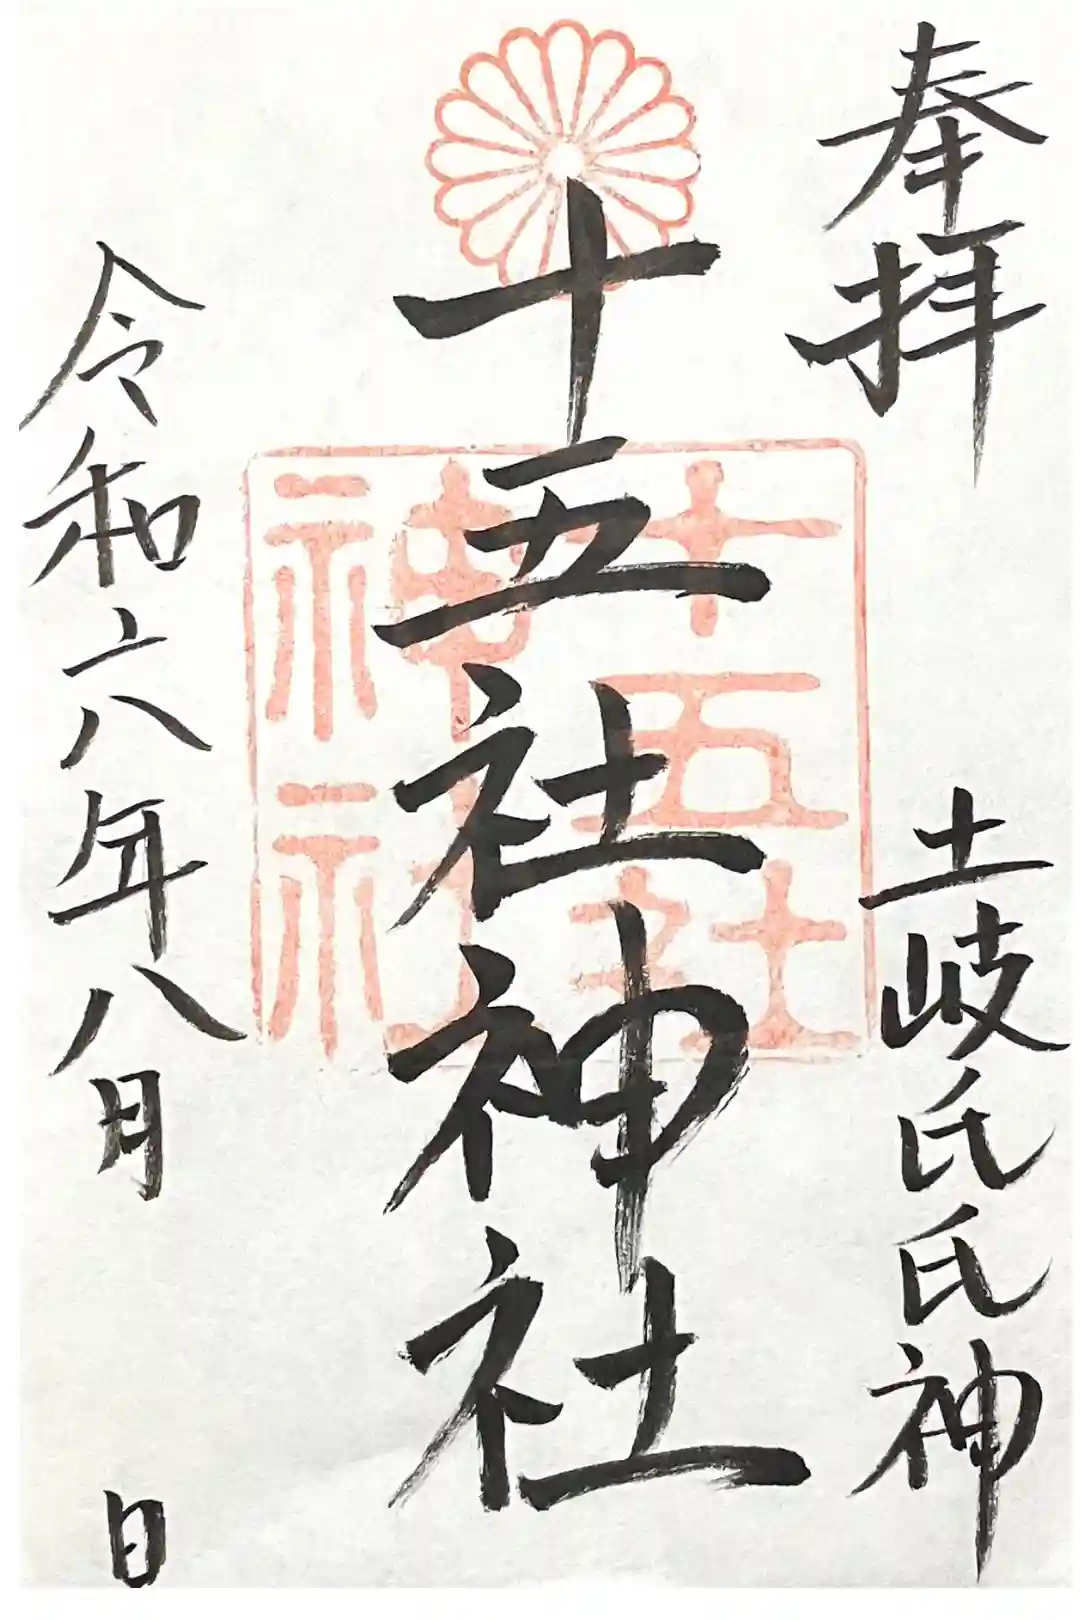 奉拝
土岐氏氏神
十五社神社
十五社
神社
令和六年八月 日